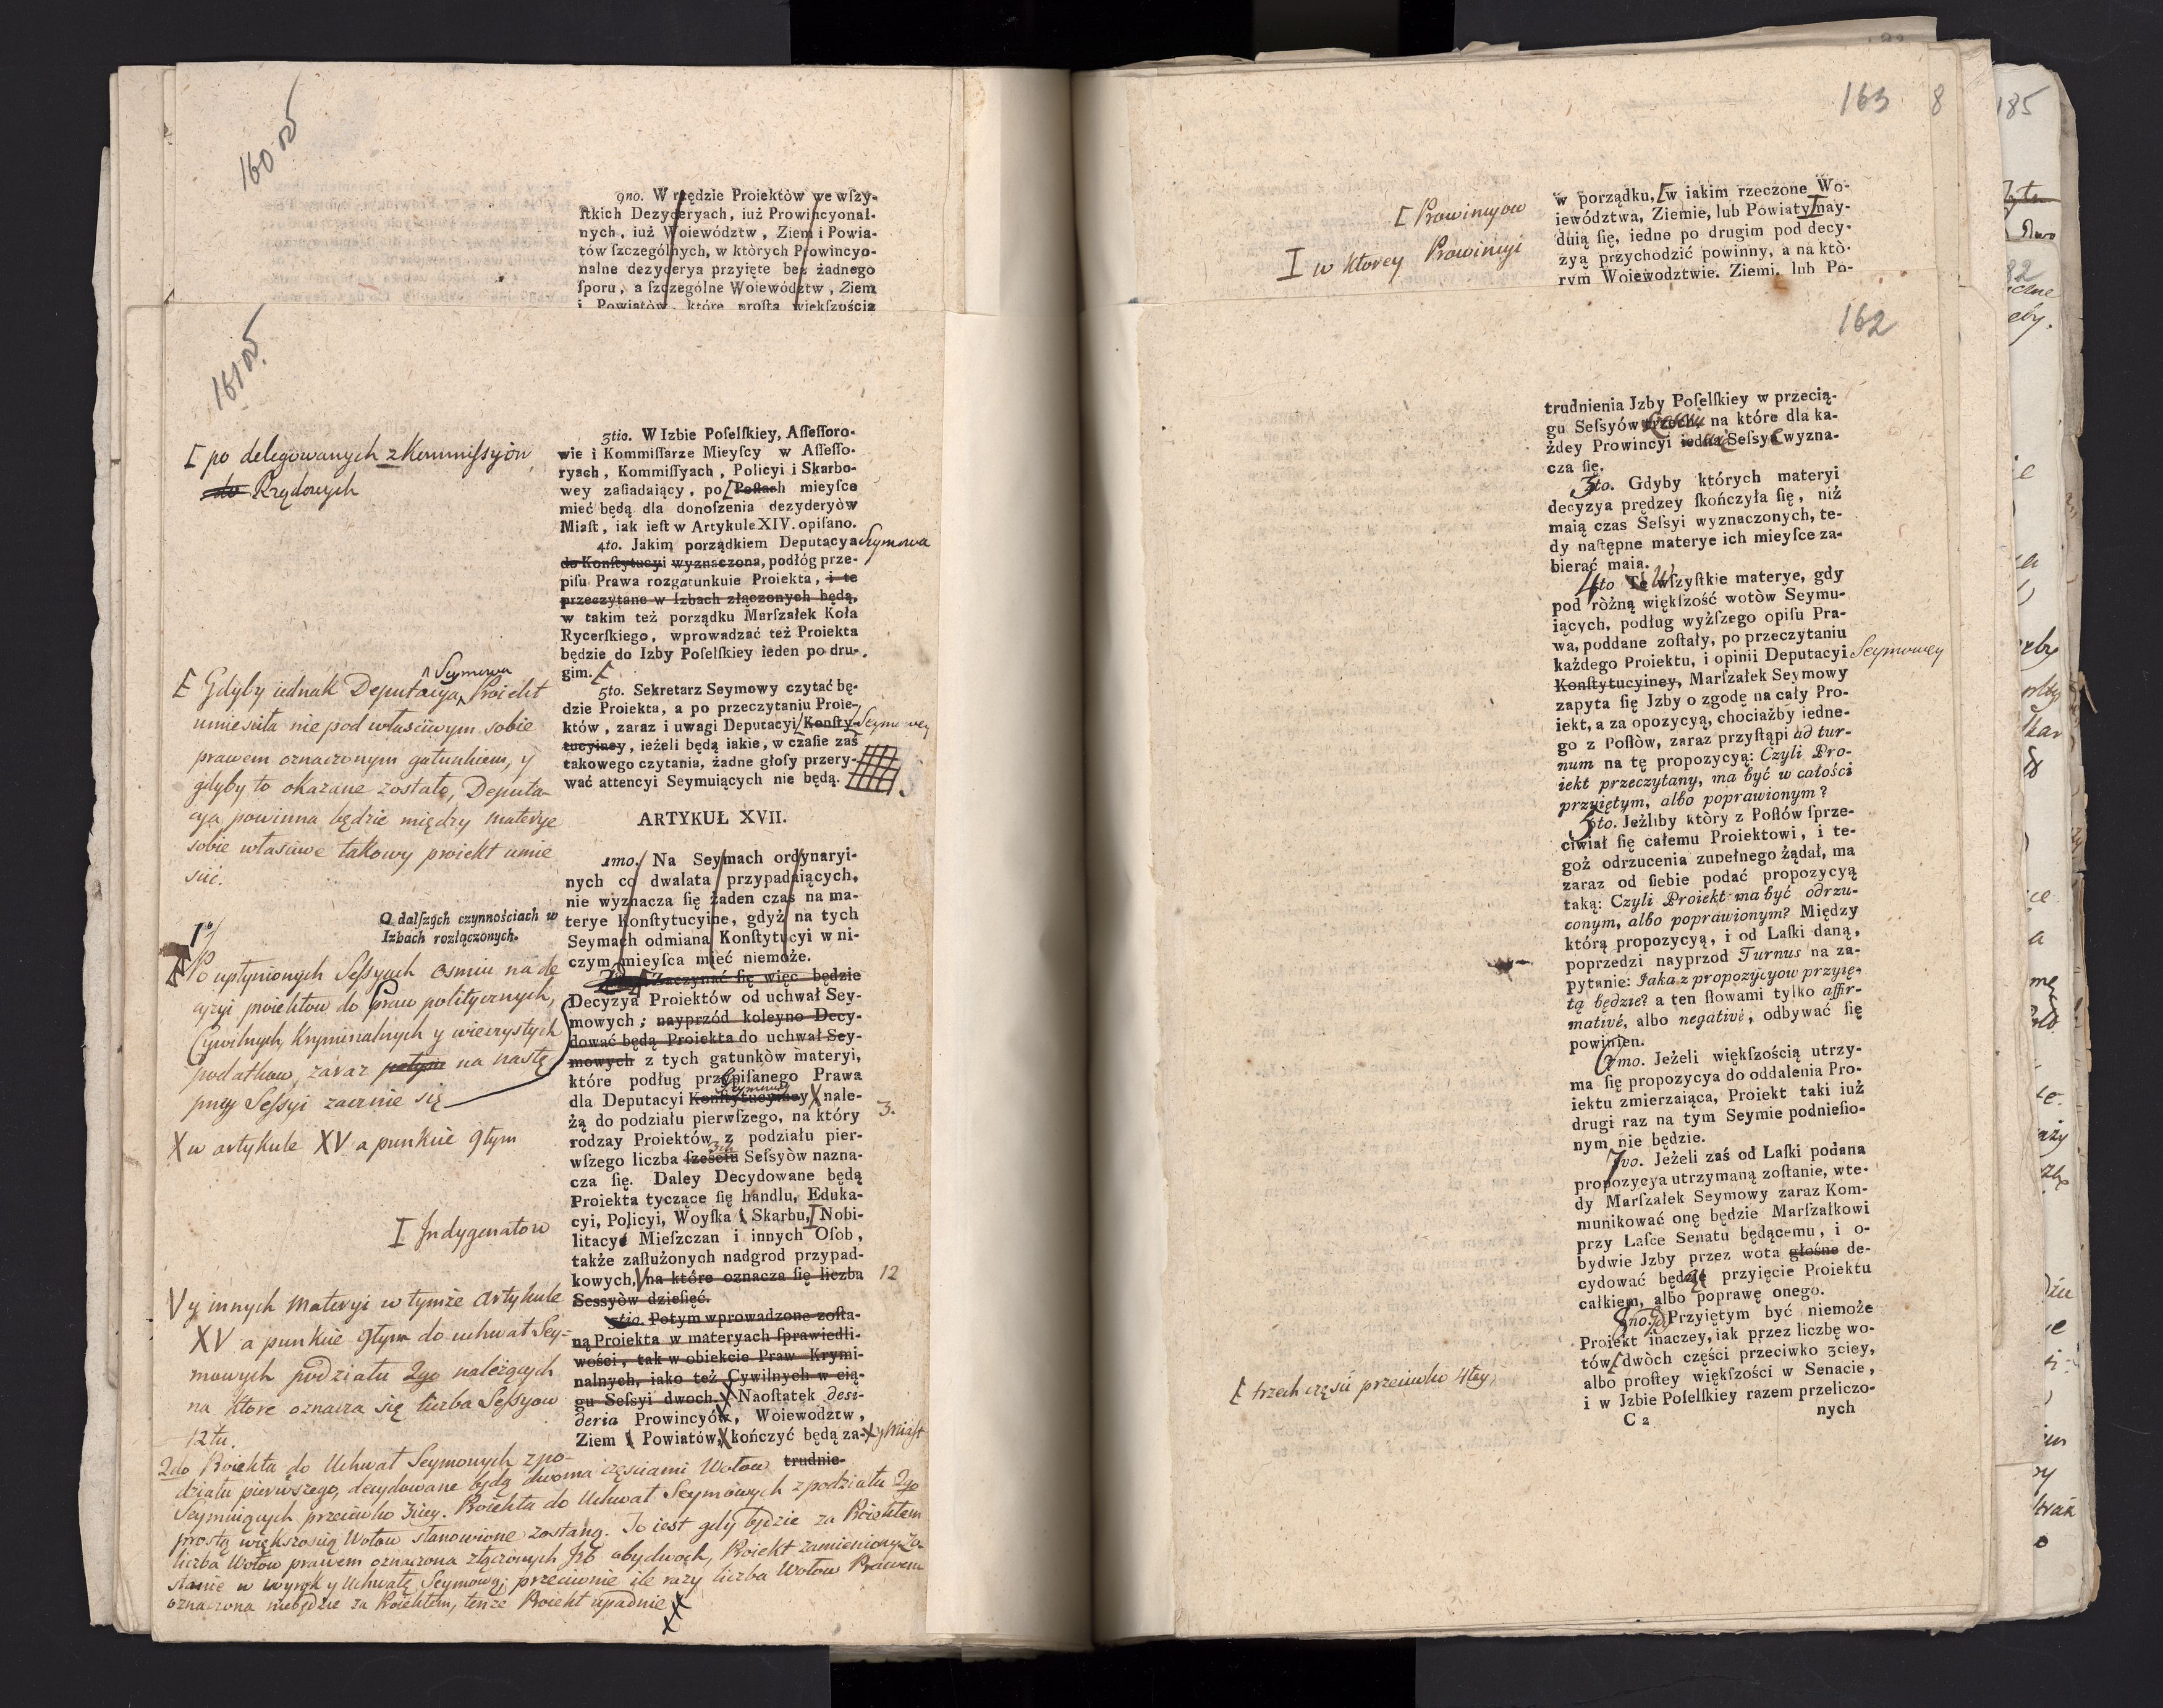 160 v
9no. W rzędzie Proiektòw we wſzy-
ſtkich Dezyderyach, iuż Prowincyonal-
nych, iuż Woiewództw, Ziem i Powia-
tów ſzczególnych, w których Prowincyo-
nalne dezyderya przyięte bez żadnego
ſporu, a ſzczególne Woiewództw, Ziem
i Powiatòw, które proſtą większością
161 v.
3tio. W Izbie Poſelſkiey, Aſſeſſoro-
wie i Kommiſſarze Mieyſcy w Aſſeſſo-
ryach, Kommiſſyach, Policyi i Skarbo-
wey zaſiadaiący, po [Poſłach mieyſce
mieć będą dla donoſzenia dezyderyòw
Miaſt, iak ieſt w Artykule XIV. opiſano.
[ po delegowanych z Kommiſsyiow
do Rządowych
4to. Jakim porządkiem Deputacya Seymowa
do Konſtytucyi wyznaczona, podłóg prze-
piſu Prawa rozgatunkuie Proiekta, i te
przeczytane w Izbach złączonych będą,
w takim też porządku Marſzałek Koła
Rycerſkiego, wprowadzać też Proiekta
będzie do Izby Poſelſkiey ieden po dru-
gim. [
[ Gdyby iednak Deputacya Seymowa Proiekt
umieściła nie pod właściwym sobie
prawem oznaczonym gatunkiem, y
gdyby to okazane zostało, Deputa-
cya powinna będzie między materye
sobie właściwe takowy proiekt umie
ścić.
5to. Sekretarz Seymowy czytać bę-
dzie Proiekta, a po przeczytaniu Proie-
któw, zaraz i uwagi Deputacyi [Konſty- Seymowey
tucyiney, ieżeli będą iakie, w czaſie zaś
takowego czytania, żadne głoſy przery-
wać attencyi Seymuiących nie będą.
ARTYKUŁ XVII.
O dalſzych czynnościach w
Izbach rozłączonych.
1mo. Na Seymach ordynaryi-
nych co dwalata przypadaiących,
nie wyznacza się żaden czas na ma-
terye Konſtytucyine, gdyż na tych
Seymach odmiana Konſtytucyi w ni-
czym mieyſca mieć niemoże.
1o/
Po upłynionych Seſsyach osmiu na de
cyzyi proiektow do Praw politycznych,
Cywilnych, Kryminalnych y wieczystych
podatkow, zaraz potym na nastę
pney Seſsyi zacznie się
Zaczynać ſię więc będzie
Decyzya Proiektów od uchwał Sey-
mowych; nayprzód koleyno Decy-
dować będą Proiekta do uchwał Sey-
mowych z tych gatunkòw materyi,
które podług przepiſanego Prawa
dla Deputacyi Konſtytucyiney Seymowey X nale-
żą do podziału pierwſzego, na który 3.
rodzay Proiektów z podziału pier-
wſzego liczba ſześciu 3ch Seſsyòw nazna-
cza ſię. Daley Decydowane będą
Proiekta tyczące ſię handlu, Eduka-
cyi, Policyi, Woyſka Skarbu, I Nobi-
litacyi Mieſzczan i innych Oſob,
także zaſłużonych nadgrod przypad-
kowych, V na które oznacza ſię liczba 12
Sessyòw dzieſięć.
X w artykule XV a punkcie 9tym
I Indygenatow
V y innych Materyi w tymże artykule
XV a punkcie 9tym do uchwał Sey-
mowych podziału 2go należących
na ktore oznacza się liczba Seſsyow
12tu.
3tio. Potym wprowadzone zoſta-
ną Proiekta w materyach ſprawiedli-
wości, tak w obiekcie Praw Krymi-
nalnych, iako też Cywilnych w cią-
gu Seſsyi dwoch. X Naoſtatek desi-
deria Prowincyów, Woiewodztw,
Ziem Powiatów, X kończyć będą za- X y Miast
trudnie-
2do Proiekta do Uchwał Seymowych z po-
działu pierwszego, decydowane będą dwoma częściami Wotow
Seymuiących przeciwko 3ciey. Proiekta do Uchwał Seymowych z podziału 2go
prostą większością Wotow stanowione zostaną. To iest gdy będzie za Proiektem
liczba Wotow prawem oznaczona złączonych Izb obydwoch, Proiekt zamieniony zo-
stanie w wyrok y Uchwałę Seymową; przeciwnie ile razy liczba Wotow Prawem
oznaczona niebędzie za Proiektem, tenże Proiekt upadnie XX
163 8
w porządku, [w iakim rzeczone Wo-
iewództwa, Ziemie, lub Powiaty I nay-
duią ſię, iedne po drugim pod decy-
zyą przychodzić powinny, a na któ-
rym Woiewodztwie, Ziemi, lub Po-
[ Prowincyow
I w ktorey Prowincyi
162
trudnienia Jzby Poſelſkiey w przecią-
gu Seſsyów trzech, na które dla ka-
żdey Prowincyi iedna Seſsya wyzna-
cza ſię.
3to. Gdyby których materyi
decyzya prędzey ſkończyła ſię, niż
maią czas Seſsyi wyznaczonych, te-
dy naſtępne materye ich mieyſce za-
bierać maią.
4to Te Wſzyſtkie materye, gdy
pod ròżną więkſzość wotòw Seymu-
iących, podług wyżſzego opiſu Pra-
wa, poddane zoſtały, po przeczytaniu
każdego Proiektu, i opinii Deputacyi Seymowey
Konſtytucyiney, Marſzałek Seymowy
zapyta ſię Jzby o zgodę na cały Pro-
iekt, a za opozycyą, chociażby iedne-
go z Poſłòw, zaraz przyſtąpi ad tur-
num na tę propozycyą: Czyli Pro-
iekt przeczytany, ma być w całości
przyiętym, albo poprawionym?
5to. Jeżliby który z Poſłów ſprze-
ciwiał ſię całemu Proiektowi, i te-
goż odrzucenia zupełnego żądał, ma
zaraz od ſiebie podać propozycyą
taką: Czyli Proiekt ma być odrzu-
conym, albo poprawionym? Między
którą propozycyą, i od Laſki daną,
poprzedzi nayprzod Turnus na za-
pytanie: Jaka z propozycyow przyię-
tą będzie? a ten ſłowami tylko affir-
mativé, albo negativé, odbywać ſię
powinien.
6mo. Jeżeli więkſzością utrzy-
ma ſię propozycya do oddalenia Pro-
iektu zmierzaiąca, Proiekt taki iuż
drugi raz na tym Seymie podnieſio-
nym nie będzie.
7vo. Jeżeli zaś od Laſki podana
propozycya utrzymaną zoſtanie, wte-
dy Marſzałek Seymowy zaraz Kom-
munikować onę będzie Marſzałkowi
przy Laſce Senatu będącemu, i o-
bydwie Jzby przez wota głośne de-
cydować będą przyięcie Proiektu
całkiem, albo poprawę onego.
8no. Przyiętym być niemoże
Proiekt inaczey, iak przez liczbę wo-
tów [dwòch części przeciwko 3ciey,
albo proſtey więkſzości w Senacie,
i w Jzbie Poſelſkiey razem przeliczo-
C 2 nych
[ trzech części przeciwko 4tey,
185